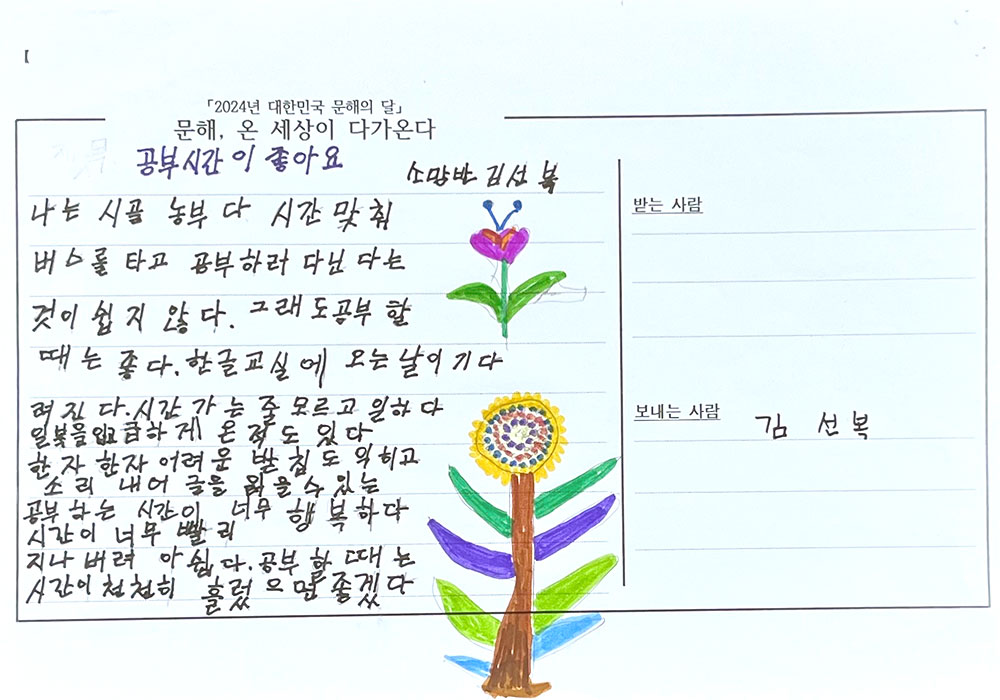 「2024년 대한민국 문해의 달」
문해, 온 세상이 다가온다
공부시간이 좋아요
소망반 김선복
나는 시골 농부다 시간 맞춰
버스를 타고 공부하러 다닌다는
것이 쉽지 않다. 그래도 공부 할
때는 좋다. 한글교실에 오는날이 기다
려진다. 시간 가는 줄 모르고 일하다
일복을 입고 급하게 온 적도 있다
한자 한자 어려운 받침도 익히고
소리 내어 글을 읽을 수 있는
공부하는 시간이 너무 행복하다
시간이 너무 빨리
지나 버려 아쉽다. 공부 할 때는
시간이 천천히 흘렀으면 좋겠다
받는 사람
보내는 사람
김 선복